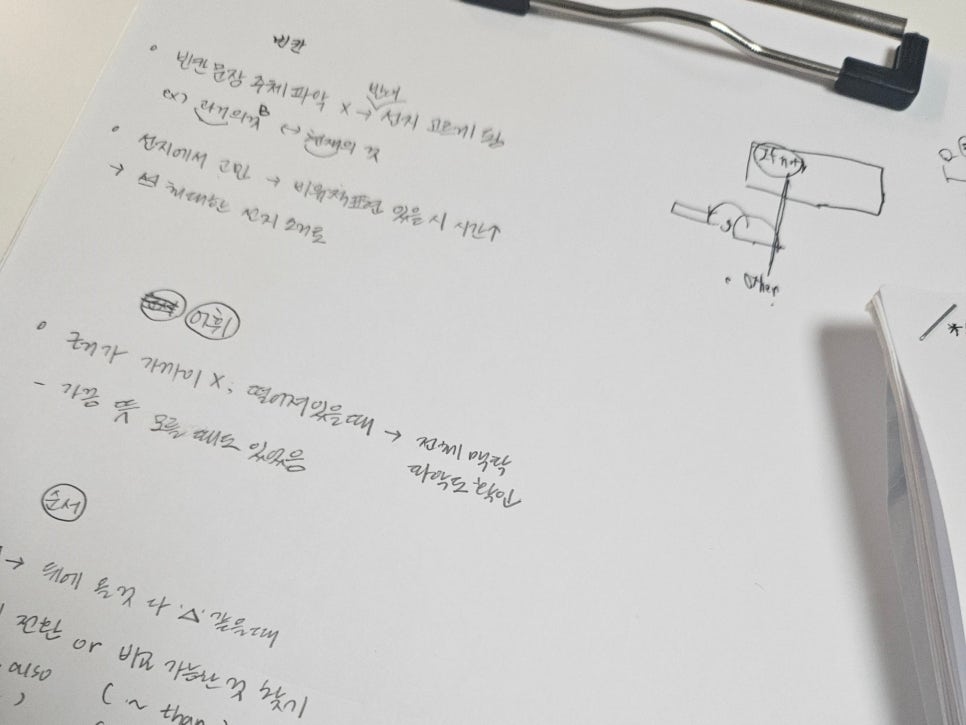 빈칸
• 빈칸 문장 주체 파악 X → 반대 선지 고르게 됨
ex) 과거의 것 B ↔ 현재의 것
• 선지에서 고민 → 비유적표현 있을 시 시간↑
→ 최대한 선지 소거로
어휘
• 근거가 가까이 X; 떨어져있을때 → 전체 맥락
파악도 확인
- 가끔 뜻 모를 때도 있었음
순서
→ 뒤에 올것 다 △ 같을때
전환 or 비교 가능한 것 찾기
also ( ~ than )
If not
other